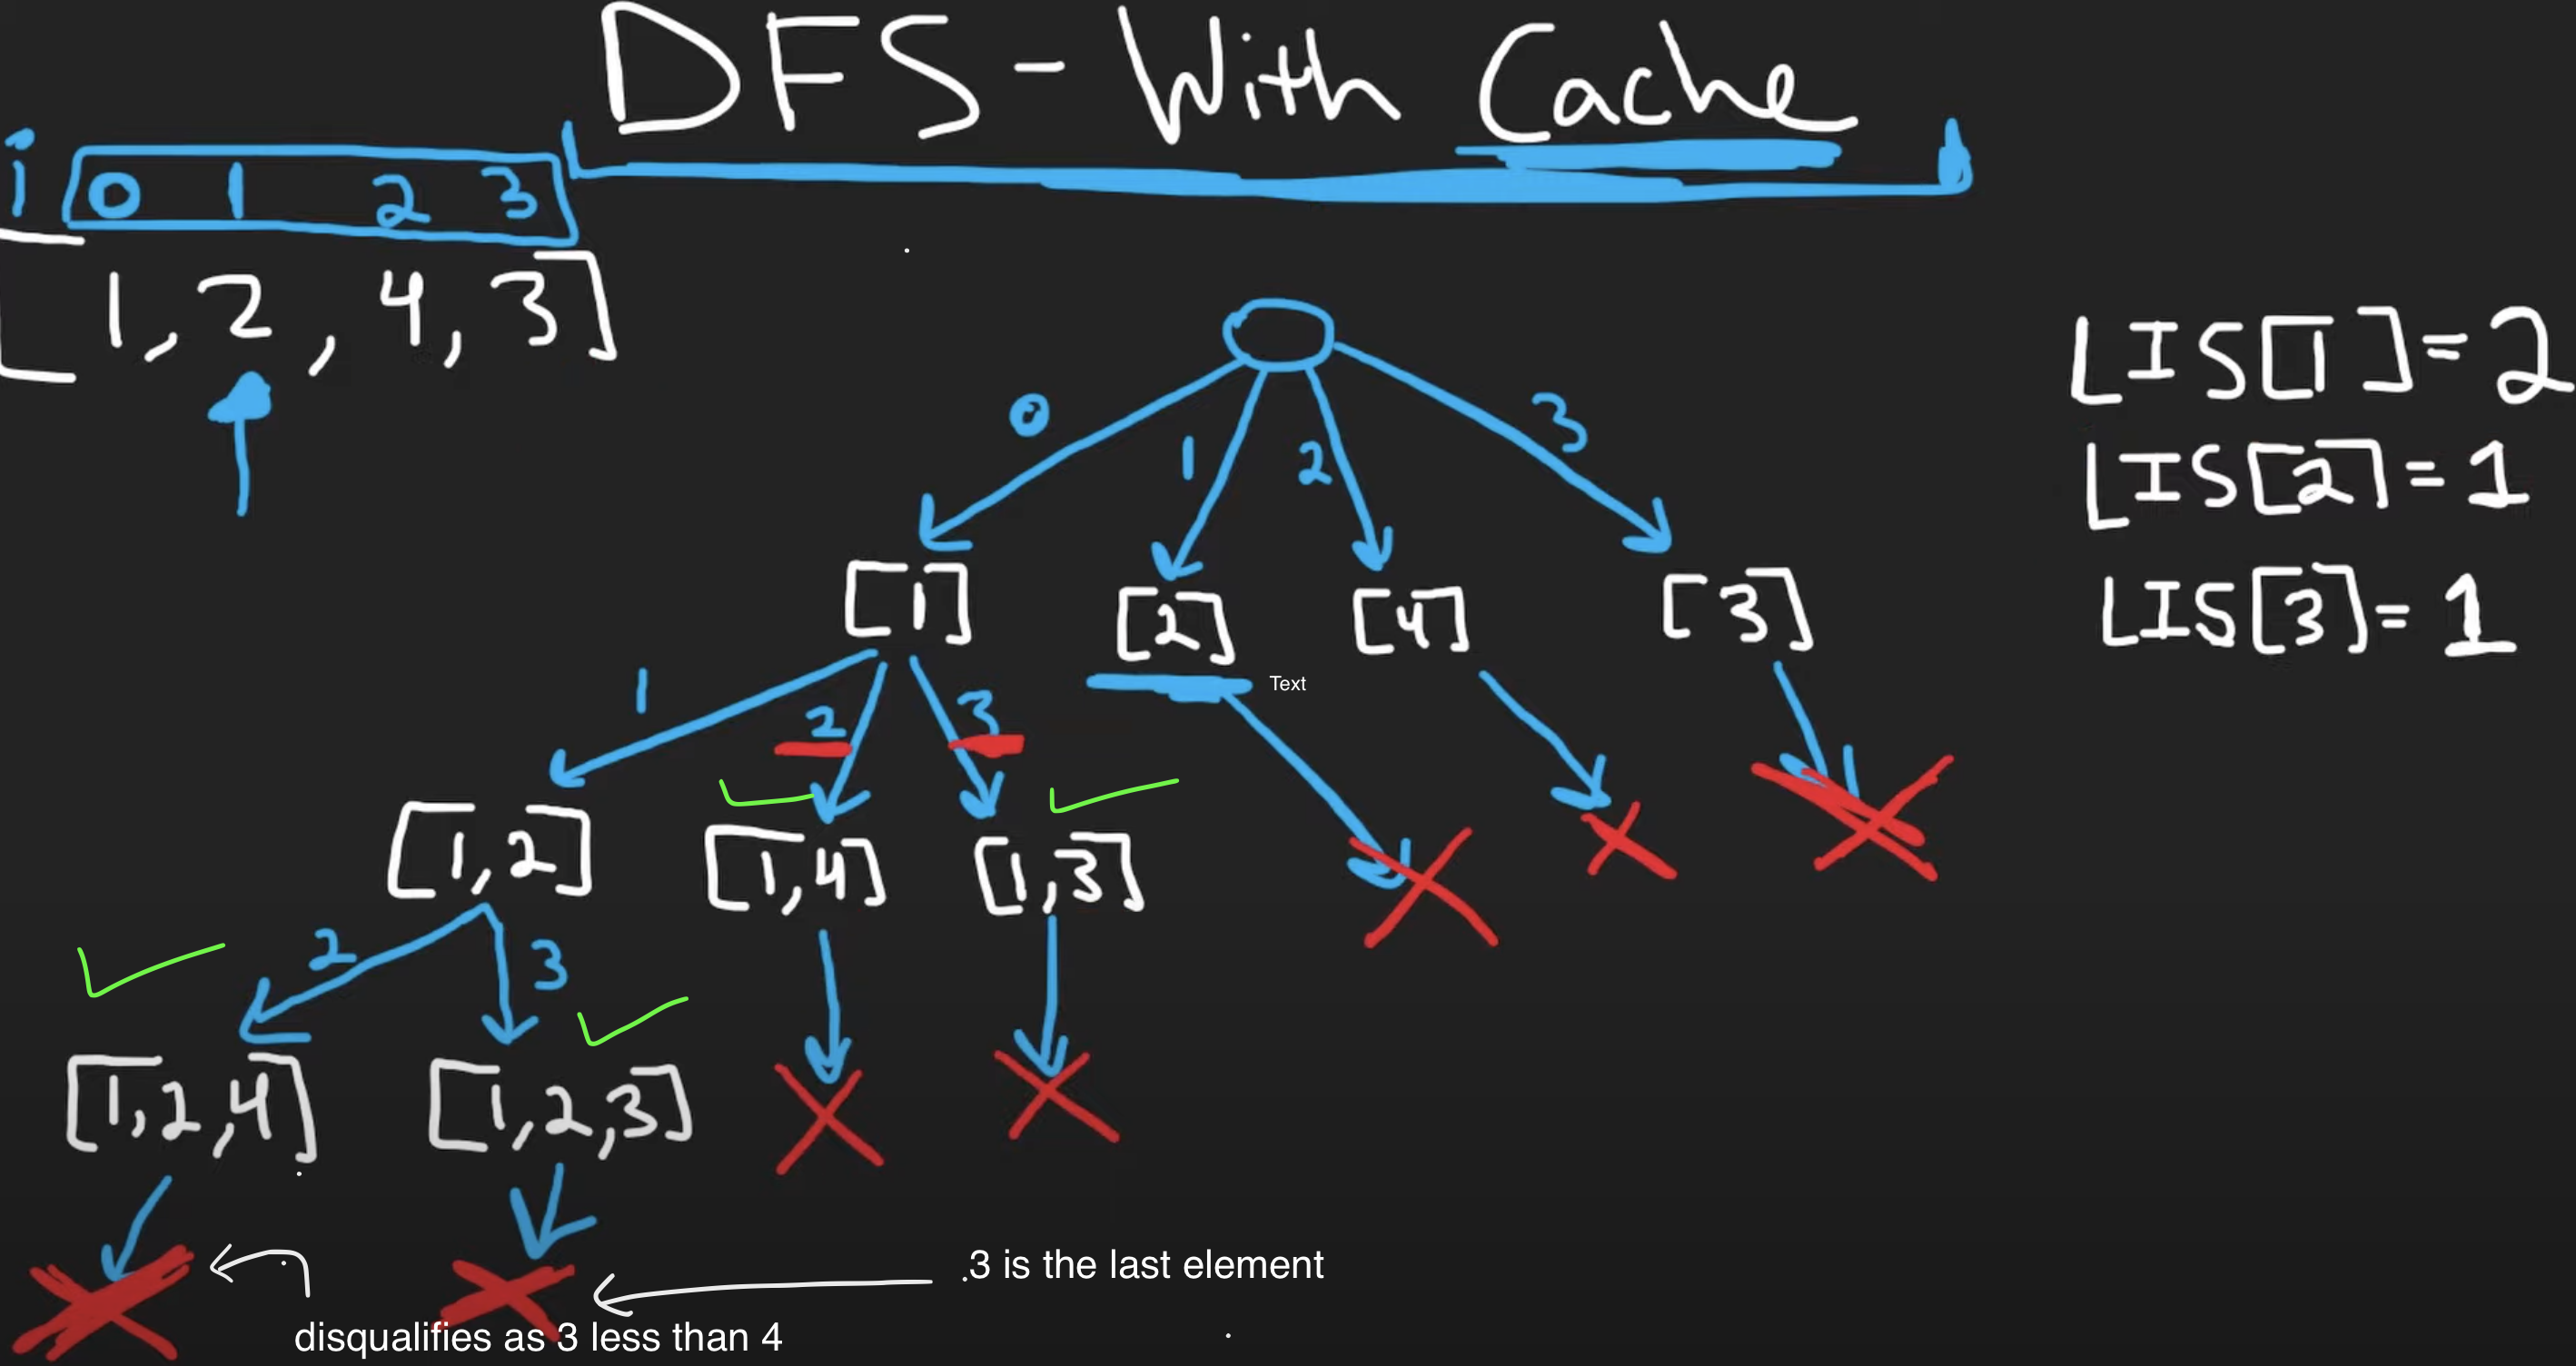 DFS - With Cache
i 0 1 2 3
[1, 2, 4, 3]
LIS[1] = 2
LIS[2] = 1
LIS[3] = 1
0 1 2 3
[1] [2] [4] [3]
Text
1 2 3
[1,2] [1,4] [1,3]
2 3
[1,2,4] [1,2,3]
.3 is the last element
disqualifies as 3 less than 4